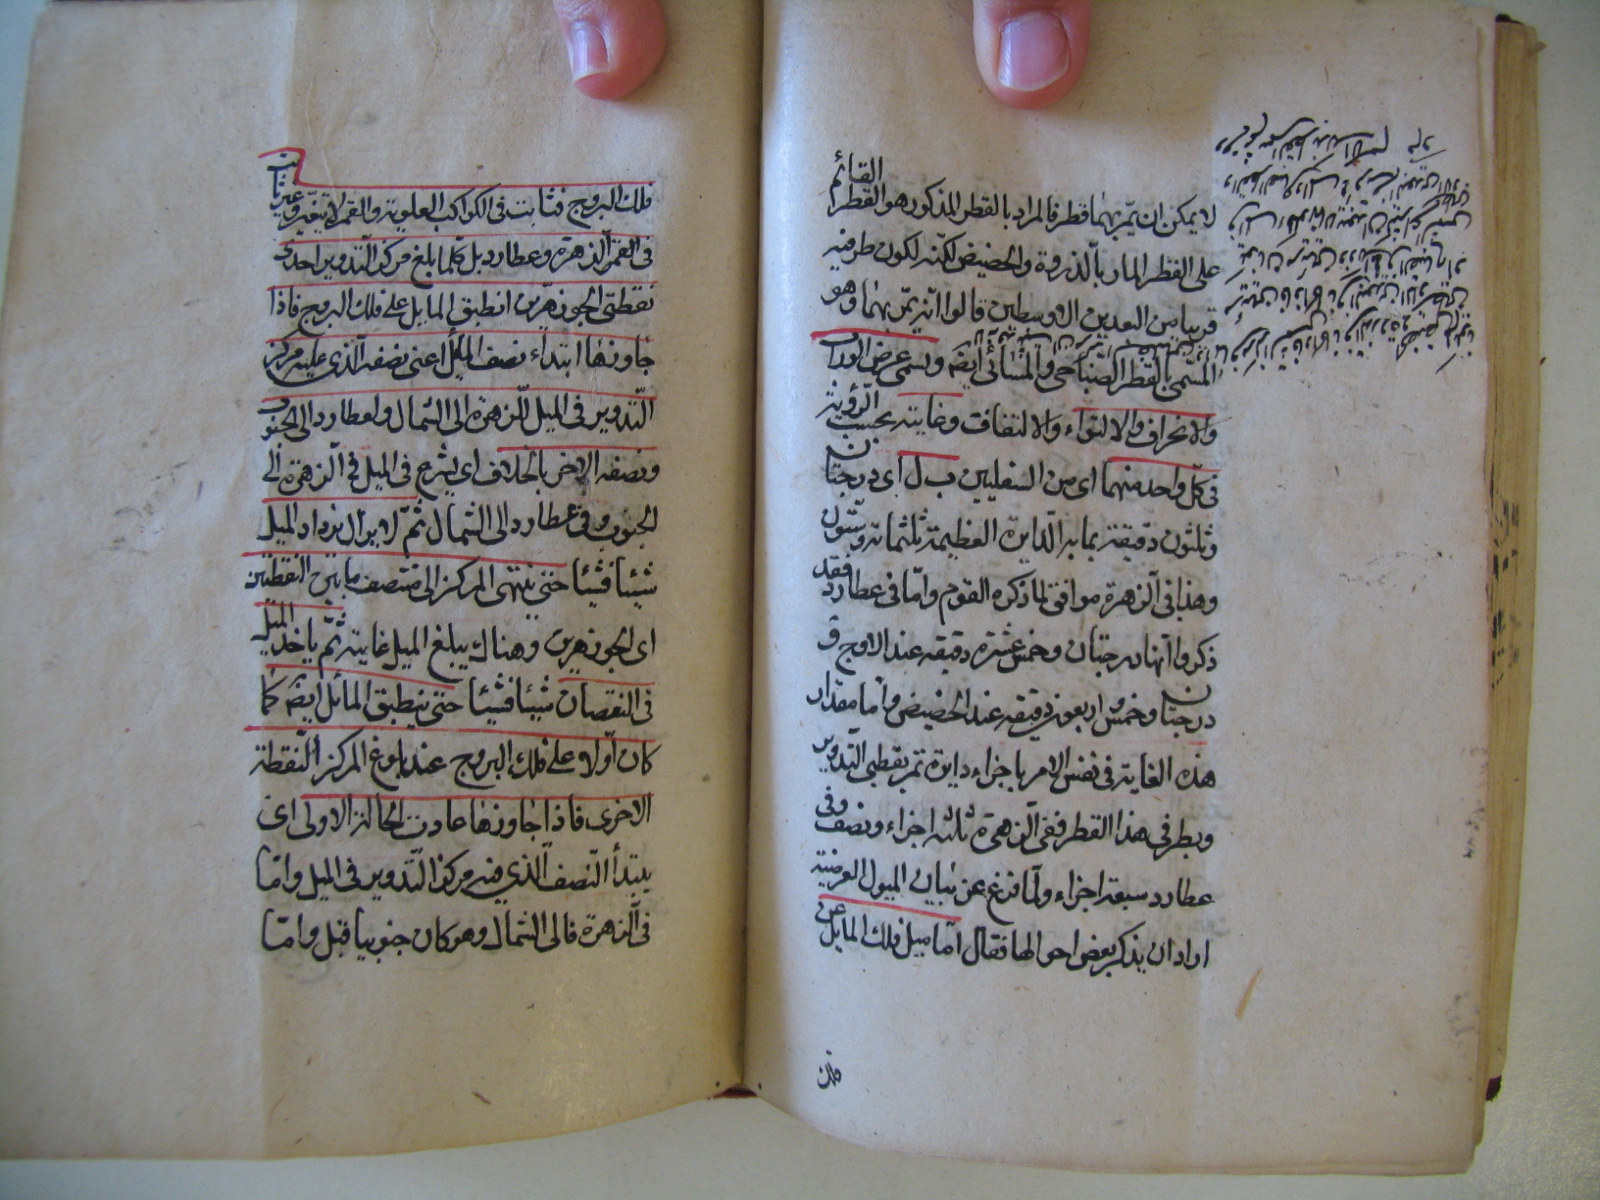 لا يمكن ان يمر بهما قطر فالمراد بالقطر المذكور هو القطر القائم
على القطر المار بالذروة والحضيض لكنه لكون طرفيه
قريبا من البعدين الاوسطين قالوا انه يمر بهما وهو
المسمى بالقطر الصباحى والمسائى ايضا ويسمى عرض الوراب
والانحراف والالتواء والالتفاف وغايته بحسب الرؤية
فى كل واحد منهما اى من السفليين ب ل اى درجتان
وثلثون دقيقة بما به الدايرة العظيمة ثلثمائة وستون
وهذا فى الزهرة موافق لما ذكره القوم واما فى عطارد فقد
ذكروا انها درجتان وخمس عشرة دقيقه عند الاوج و
درجتان وخمس واربعون دقيقه عند الحضيض واما مقدار
هذه الغاية فى نفس الامر باجزاء دايرة تمر بقطبى التدوير
وبطرفى هذا القطر ففى الزهرة ثلثه اجزاء ونصف وفى
عطارد سبعة اجزاء ولما فرغ عن بيان الميول العرضية
اراد ان يذكر بعض احوالها فقال اما ميل فلك المايل عن
فلك
فلك البروج فثابت فى الكواكب العلوية والقمر لا يتغير وغير ثابت
فى الزهرة وعطارد بل كلما بلغ مركز التدوير احدى
نقطتى الجوزهرين انطبق المايل على فلك البروج فاذا
جاوزها ابتداء نصف المايل اعنى نصفه الذى عليه مركز
التدوير فى الميل للزهرة الى الشمال ولعطارد الى الجنوب
ونصفه الاخر بالخلاف اى يشرع فى الميل فى الزهرة الى
الجنوب وفى عطارد الى الشمال ثم لا يزال يزداد الميل
شيئا فشيئا حتى ينتهى المركز الى منتصف ما بين النقطتين
اى الجوزهرين وهناك يبلغ الميل غايته ثم ياخذ الميل
فى النقصان شيئا فشيئا حتى ينطبق المائل ايضا كما
كان اولا على فلك البروج عند بلوغ المركز النقطة
الاخرى فاذا جاوزها عادت الحالة الاولى اى
يبتدأ النصف الذى فيه مركز التدوير فى الميل واما
فى الزهرة فالى الشمال وهو كان جنوبيا قبل واما